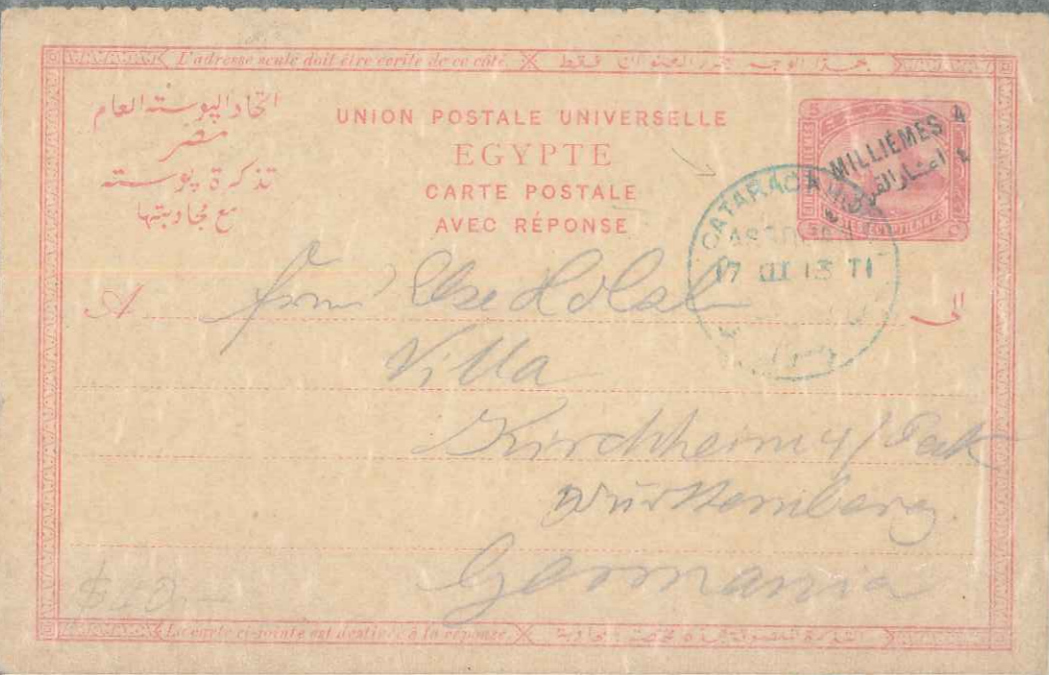 L'adresse seule doit être écrite de ce côté.
اتحاد البوسته العام
مصر
تذكرة بوسته
مع مجاوبتها
UNION POSTALE UNIVERSELLE
EGYPTE
CARTE POSTALE
AVEC RÉPONSE
5 5
4 MILLIÈMES
٤ اعشار القرش
17 III 13 T1
A الى
Villa
Kirchheim u/Teck
Württemberg
Germania
La carte ci-jointe est destinée à la réponse.